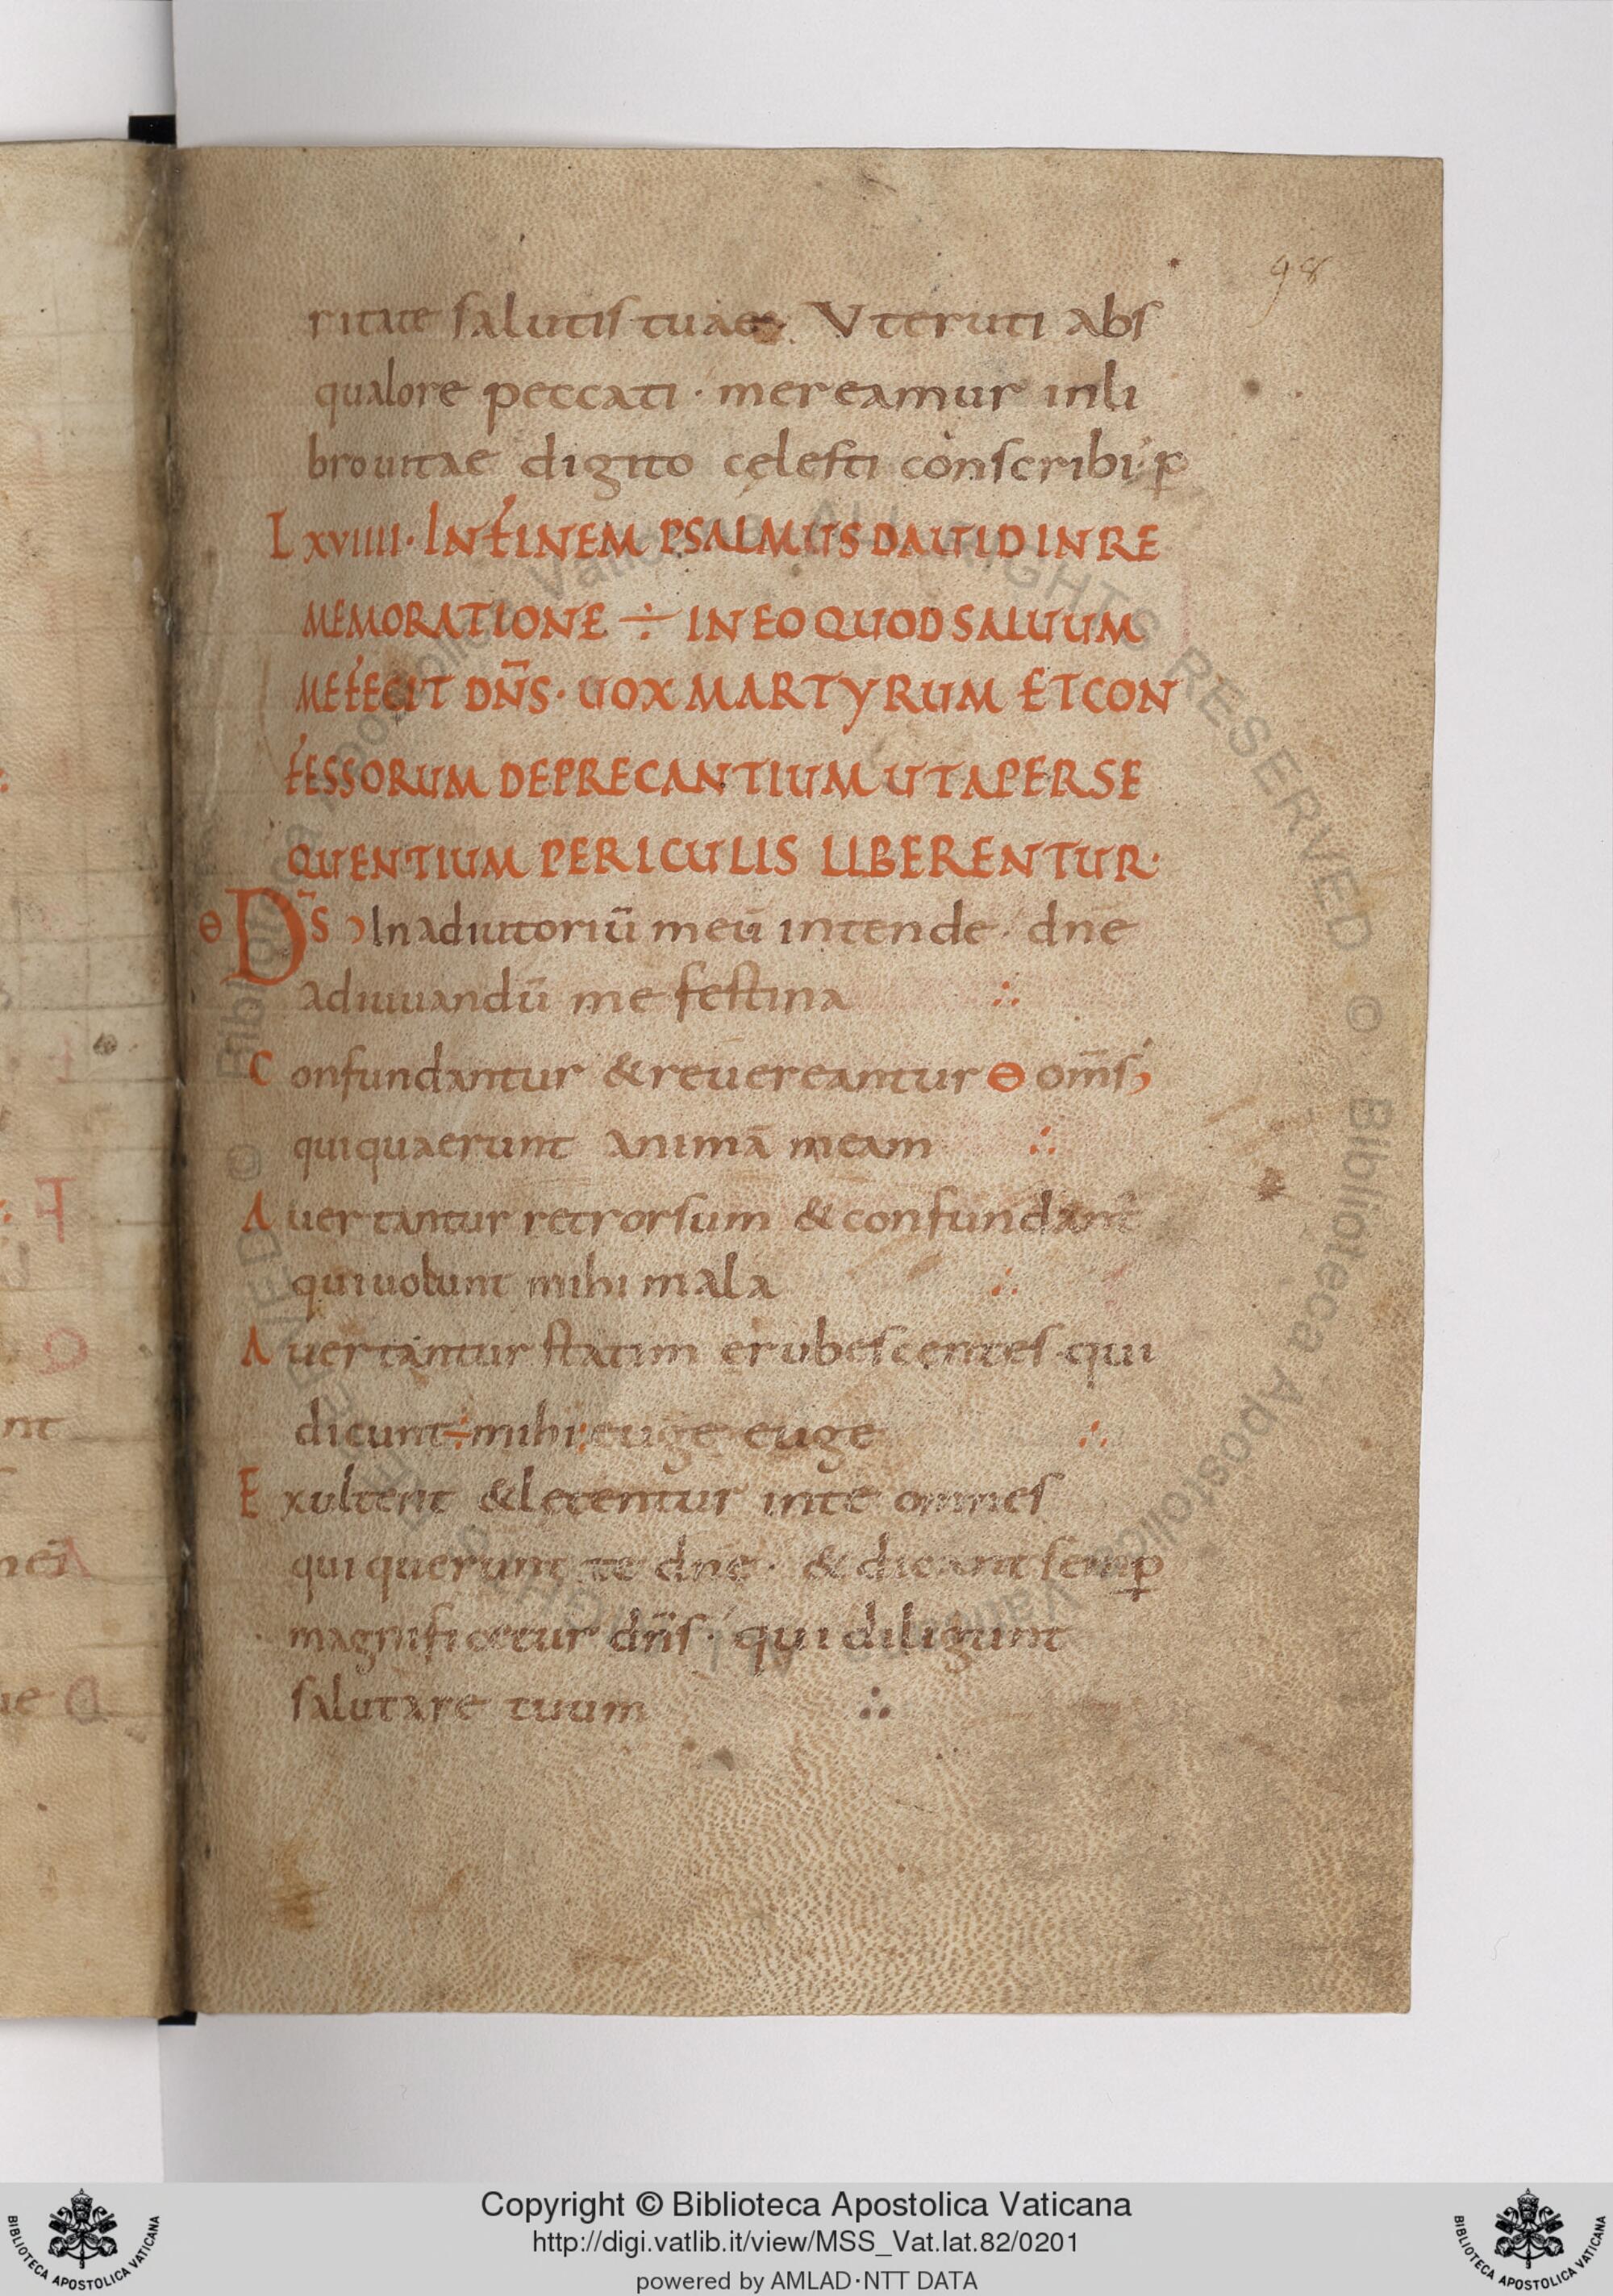 98
ritate salutis tuae. Vteruti abs
qualore peccati · mereamur inli
bro uitae digito cęlesti conscribi · p
Lxviiii · IN FINEM PSALMUS DAUID IN RE
MEMORATIONE ÷ IN EO QUOD SALUUM
ME FECIT DN̄S · UOX MARTYRUM ET CON
FESSORUM DEPRECANTIUM UT A PERSE
QUENTIUM PERICULIS LIBERENTUR ·
ɵ D̄S In adiutoriū meū intende · dn̄e
adiuuandū me festina ∴
Confundantur & reuereantur ɵ om̄s
qui quaerunt animā meam ∴
Auertantur retrorsum & confundant̄
qui uolunt mihi mala ∴
Auertantur statim erubescentes · qui
dicunt ÷ mihi : euge euge ∴
Exultent & lętentur in te omnes
qui querunt te dn̄e · & dicant semp̄
magnificetur dn̄s · qui diligunt
salutare tuum ∴
Copyright © Biblioteca Apostolica Vaticana
http://digi.vatlib.it/view/MSS_Vat.lat.82/0201
powered by AMLAD·NTT DATA
BIBLIOTECA APOSTOLICA VATICANA
BIBLIOTECA APOSTOLICA VATICANA